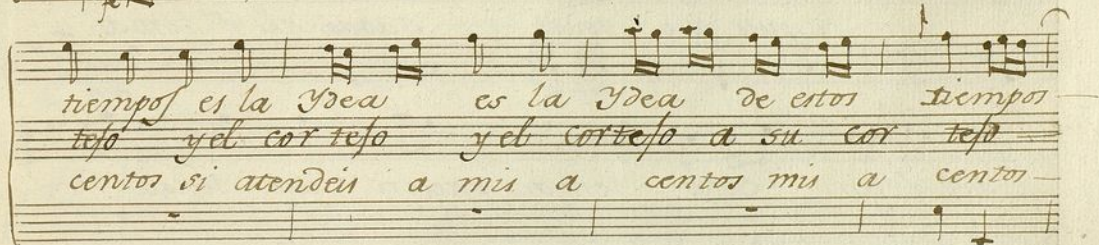 tiempos es la Ydea es la Ydea de estos tiempos
teso y el cor teso y el corteso a su cor teso
centos si atendeis a mis a centos mis a centos